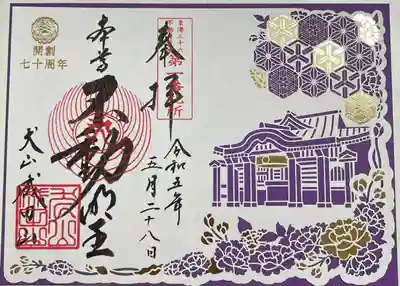 開創
七十周年
奉拝
第一番札所
本尊
不動明王
令和五年
五月二十八日
犬山成田山